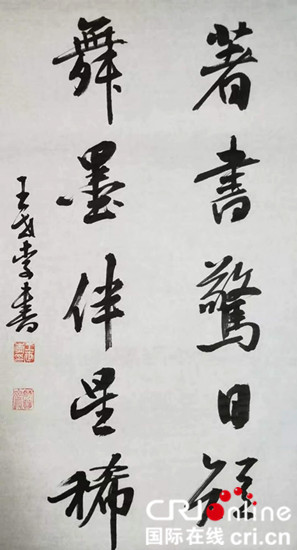 著書驚日短
舞墨伴星稀
王書
CRIonline
国际在线 cri.cn